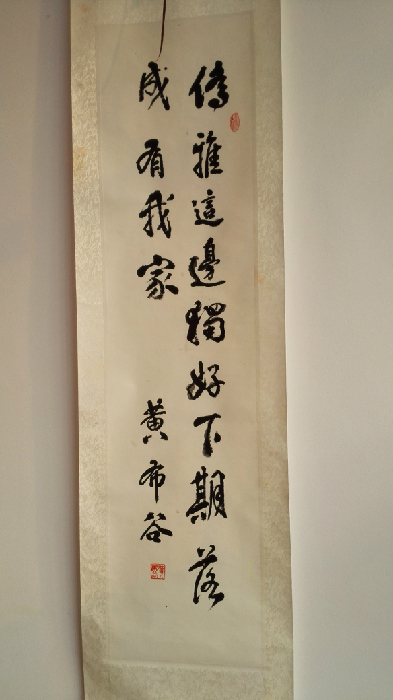 傳雅這邊獨好下期落
成有我家
黄布谷